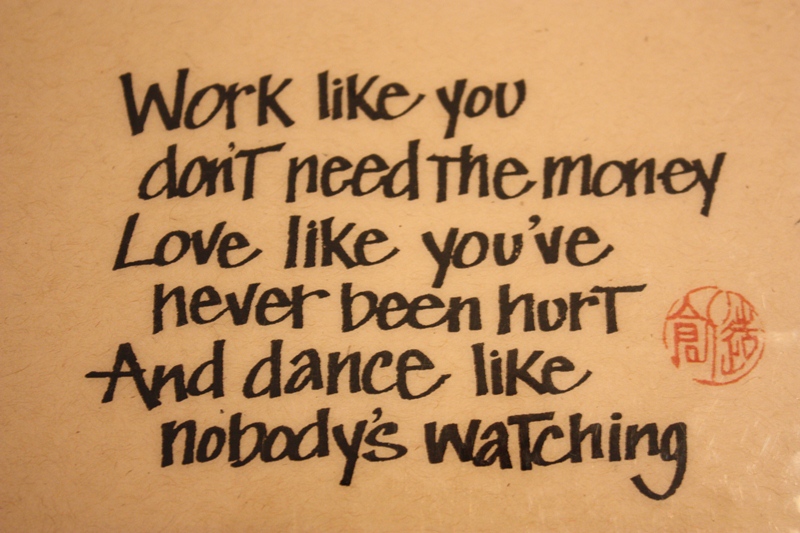 Work like you
don't need the money
Love like you've
never been hurt
And dance like
nobody's watching
創造